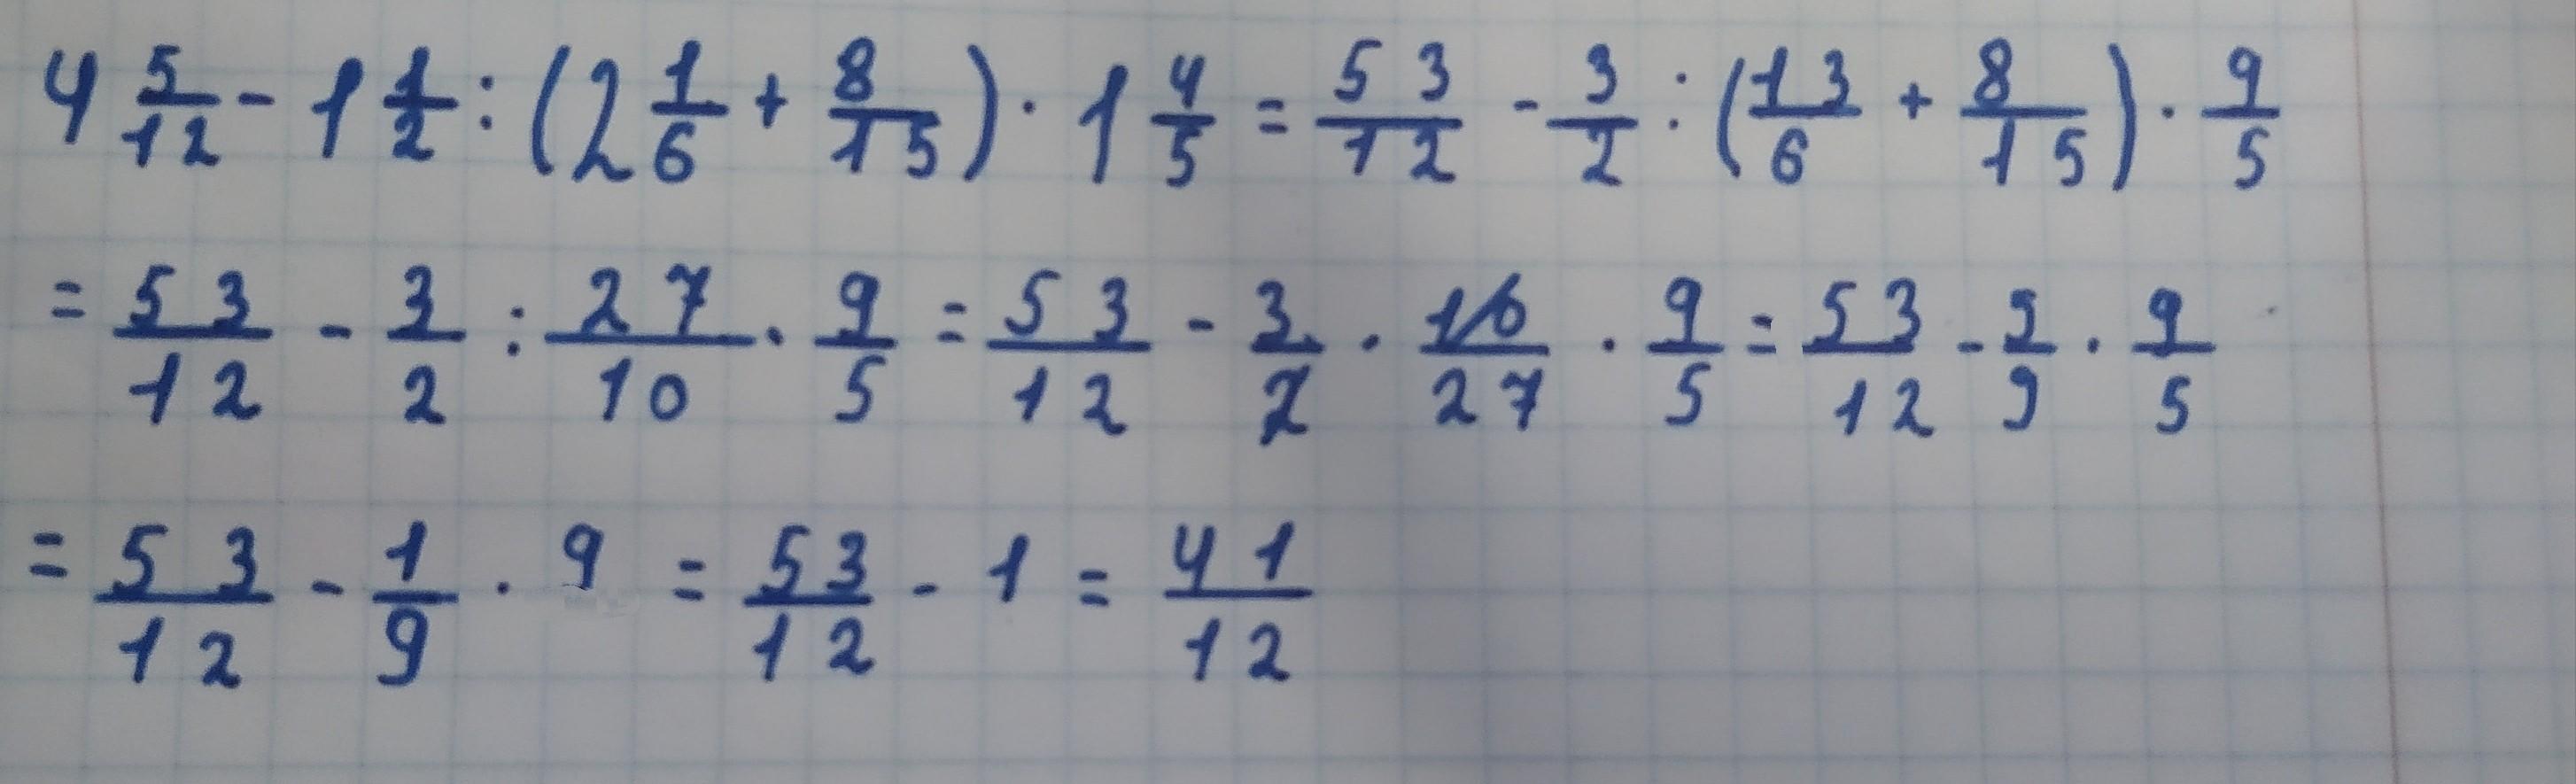 4 5/12 - 1 1/2 : (2 1/6 + 8/15) · 1 4/5 = 53/12 - 3/2 : (13/6 + 8/15) · 9/5
= 53/12 - 3/2 : 27/10 · 9/5 = 53/12 - 3/2 · 10/27 · 9/5 = 53/12 - 5/9 · 9/5
= 53/12 - 1/9 · 9 = 53/12 - 1 = 41/12